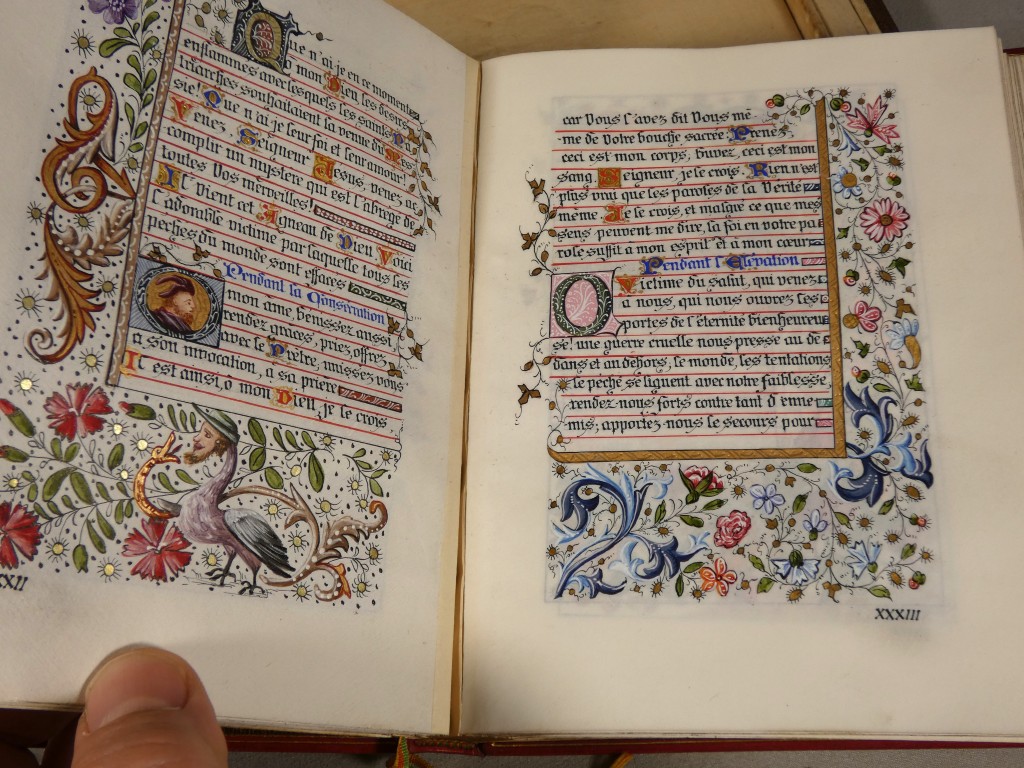 Que n'ai je en ce moment
o mon Dieu, les desirs
enflammes avec lesquels les saints Pa
triarches souhaitaient la venue du Mes
sie! Que n'ai je leur foi et leur amour!
Venez Seigneur Jesus, venez ac
complir un mystere qui est l'abrege de
toutes Vos merveilles!
Il vient cet Agneau de Dieu, Voici
l'adorable victime par laquelle tous les
peches du monde sont effaces
Pendant la Consecration
O mon ame, benissez aussi,
rendez graces, priez, offrez
avec le Prêtre, unissez vous
a son invocation, a sa priere
Il est ainsi, o mon Dieu, je le crois
XXII
car Vous l'avez dit Vous me
-me de Votre bouche sacree: Prenez
ceci est mon corps, buvez, ceci est mon
sang. Seigneur, je le crois. Rien n'est
plus vrai que les paroles de la Verite
même. Je le crois, et malgre ce que mes
sens peuvent me dire, la foi en votre pa
role suffit a mon esprit et a mon cœur
Pendant l'Elevation
O Victime du Salut, qui venez
a nous, qui nous ouvrez les
portes de l'éternite bienheureu
se! une guerre cruelle nous presse au de
dans et au dehors, le monde, les tentations
le peche se liguent avec notre faiblesse,
rendez-nous forts contre tant d'enne
mis; apportez-nous le secours pour
XXXIII